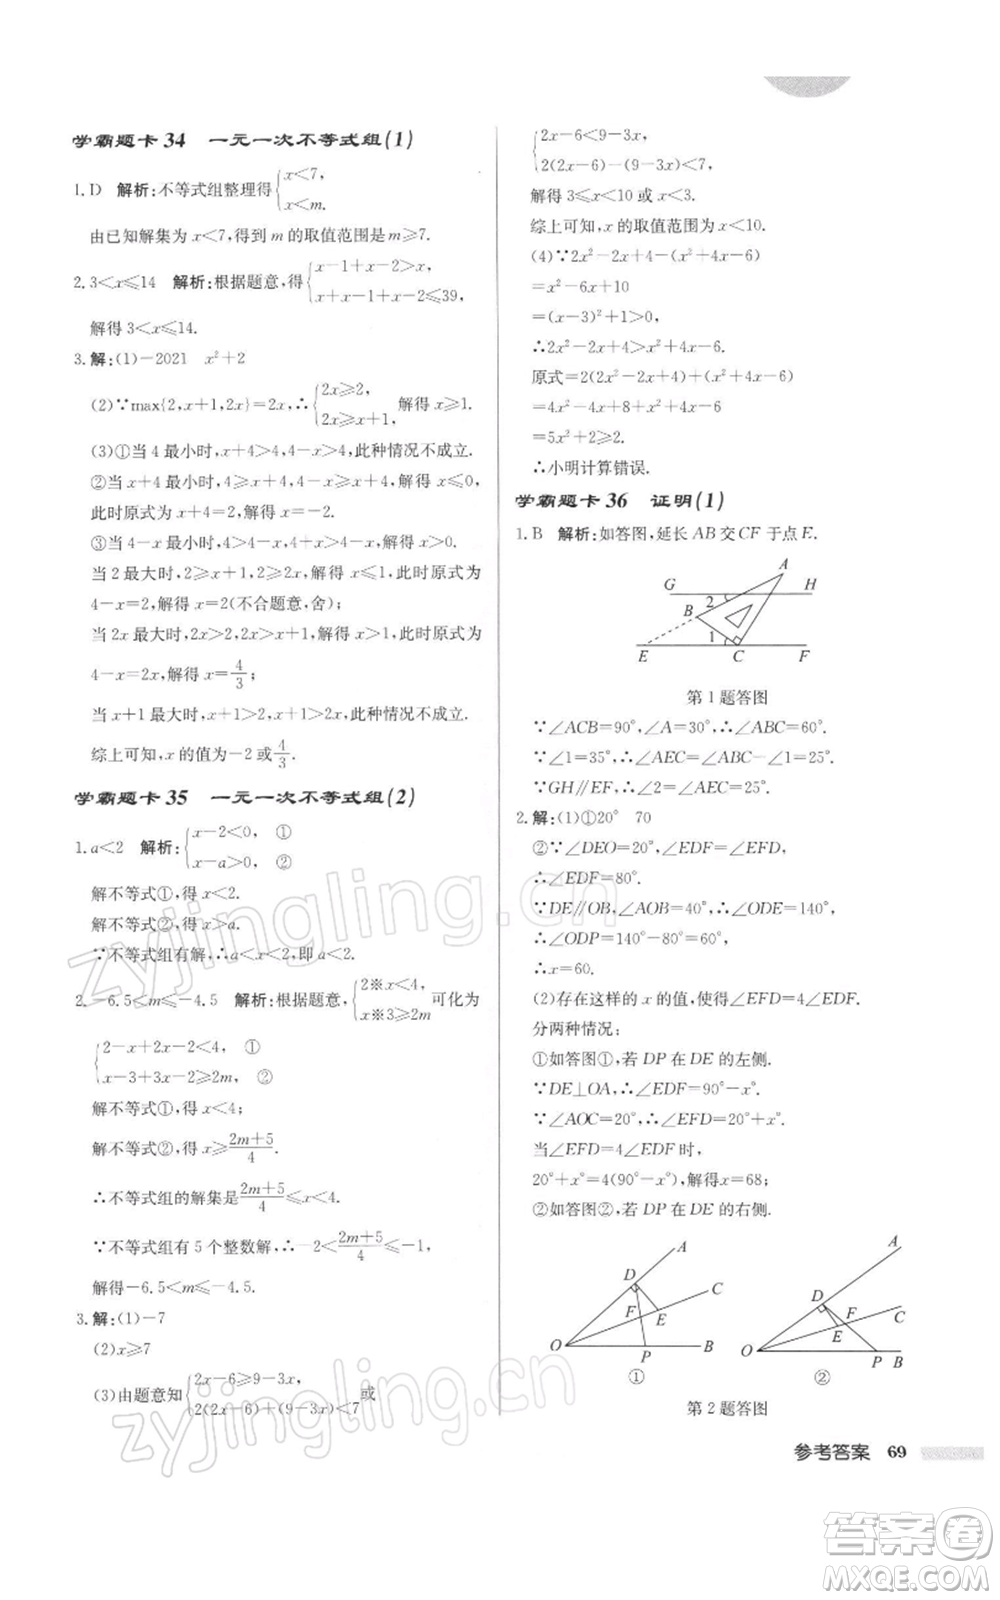 学霸题卡 34 一元一次不等式组(1)
1. D 解析:不等式组整理得{x<7,
x<m.
由已知解集为 x<7,得到 m 的取值范围是 m≥7.
2. 3<x≤14 解析:根据题意,得{x-1+x-2>x,
x+x-1+x-2≤39,
解得 3<x≤14.
3. 解:(1)-2021 x²+2
(2)∵max{2,x+1,2x}=2x,∴{2x≥2,
2x≥x+1, 解得 x≥1.
(3)①当 4 最小时,x+4>4,4-x>4,此种情况不成立.
②当 x+4 最小时,4>x+4,4-x>x+4,解得 x<0,
此时原式为 x+4=2,解得 x=-2.
③当 4-x 最小时,4>4-x,x+4>4-x,解得 x>0.
当 2 最大时,2≥x+1,2≥2x,解得 x≤1,此时原式为
4-x=2,解得 x=2(不合题意,舍);
当 2x 最大时,2x>2,2x>x+1,解得 x>1,此时原式为
4-x=2x,解得 x=4/3;
当 x+1 最大时,x+1>2,x+1>2x,此种情况不成立.
综上可知,x 的值为-2 或4/3.
学霸题卡 35 一元一次不等式组(2)
1. a<2 解析:{x-2<0, ①
x-a>0, ②
解不等式①,得 x<2.
解不等式②,得 x>a.
∵不等式组有解,∴a<x<2,即 a<2.
2. -6.5<m≤-4.5 解析:根据题意,{2※x<4,
x※3≥2m 可化为
{2-x+2x-2<4, ①
x-3+3x-2≥2m, ②
解不等式①,得 x<4;
解不等式②,得 x≥(2m+5)/4.
∴不等式组的解集是(2m+5)/4≤x<4.
∵不等式组有 5 个整数解,∴-2<(2m+5)/4≤-1,
解得-6.5<m≤-4.5.
3. 解:(1)-7
(2)x≥7
(3)由题意知{2x-6≥9-3x,
2(2x-6)+(9-3x)<7 或
{2x-6<9-3x,
2(2x-6)-(9-3x)<7,
解得 3≤x<10 或 x<3.
综上可知,x 的取值范围为 x<10.
(4)∵2x²-2x+4-(x²+4x-6)
=x²-6x+10
=(x-3)²+1>0,
∴2x²-2x+4>x²+4x-6.
原式=2(2x²-2x+4)+(x²+4x-6)
=4x²-4x+8+x²+4x-6
=5x²+2≥2.
∴小明计算错误.
学霸题卡 36 证明(1)
1. B 解析:如答图,延长 AB 交 CF 于点 E.
A
G
H
2
B
1
E
C
F
第 1 题答图
∵∠ACB=90°,∠A=30°,∴∠ABC=60°.
∵∠1=35°,∴∠AEC=∠ABC-∠1=25°.
∵GH∥EF,∴∠2=∠AEC=25°.
2. 解:(1)①20° 70
②∵∠DEO=20°,∠EDF=∠EFD,
∴∠EDF=80°.
∵DE∥OB,∠AOB=40°,∴∠ODE=140°,
∴∠ODP=140°-80°=60°,
∴x=60.
(2)存在这样的 x 的值,使得∠EFD=4∠EDF.
分两种情况:
①如答图①,若 DP 在 DE 的左侧.
∵DE⊥OA,∴∠EDF=90°-x°.
∵∠AOC=20°,∴∠EFD=20°+x°.
当∠EFD=4∠EDF 时,
20°+x°=4(90°-x°),解得 x=68;
②如答图②,若 DP 在 DE 的右侧.
A
D
C
F
E
O
P
B
①
A
D
C
F
E
O
P
B
②
第 2 题答图
参考答案 69
zyjingling.cn
zyjingling.cn
答案卷
MXQE.COM